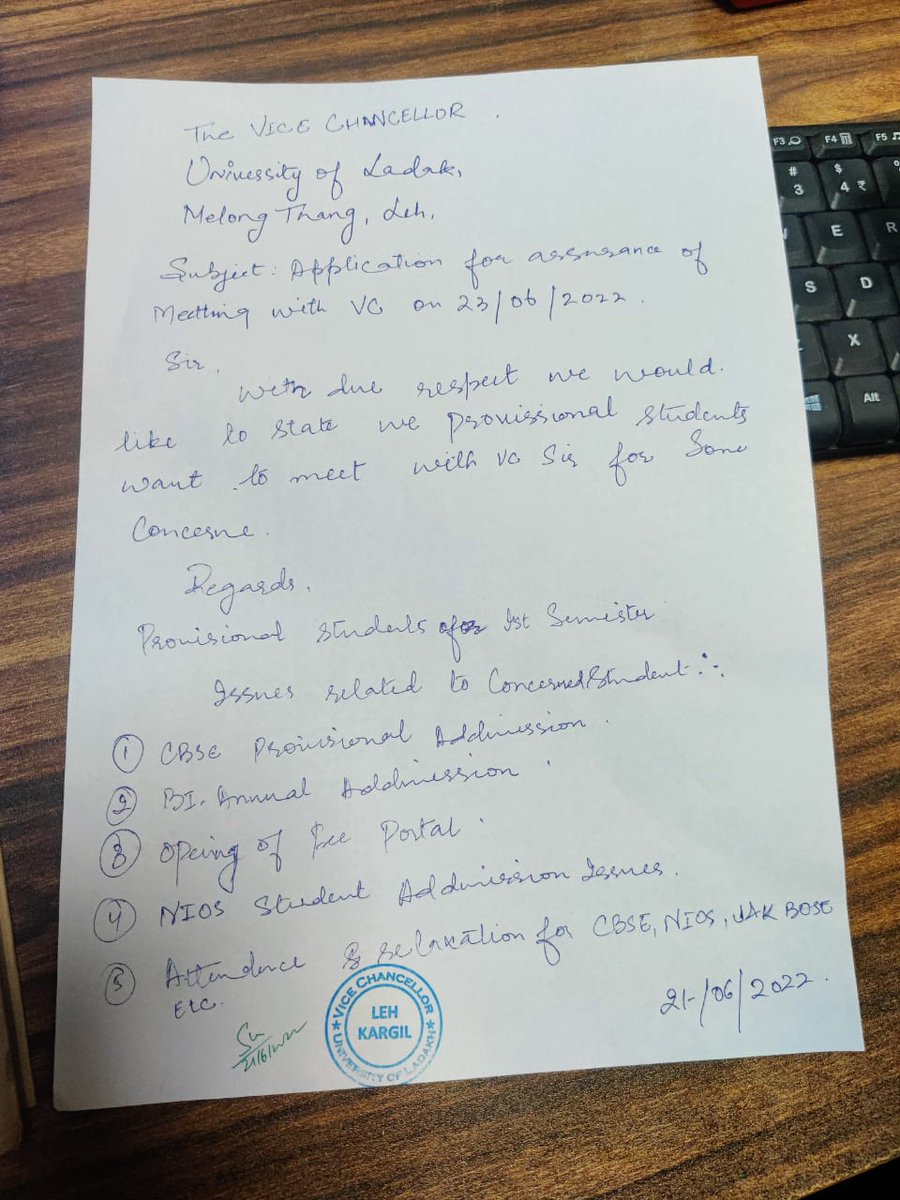 The VICE CHANCELLOR.
University of Ladak,
Melong Thang, Leh.
Subject: Application for assurance of
Meetting with VC on 23/06/2022.
Sir,
With due respect we would.
like to state we provissional students
want to meet with VC Sir for Some
Concerne.
Regards,
Provisional students of 1st Semister
Issues related to Concerned Student :
① CBSE Provisional Addmission.
② BI-Annual Addmission.
③ Opeing of fee Portal.
④ NIOS Student Addmission Issues.
⑤ Attendence & relaxation for CBSE, NIOS, JAK BOSE
Etc.
21-/06/2022.
21/6/2022
VICE CHANCELLOR
LEH
KARGIL
UNIVERSITY OF LADAKH
F3
F4
F5
#
3
$
4 ₹
E
R
S
D
X
Alt